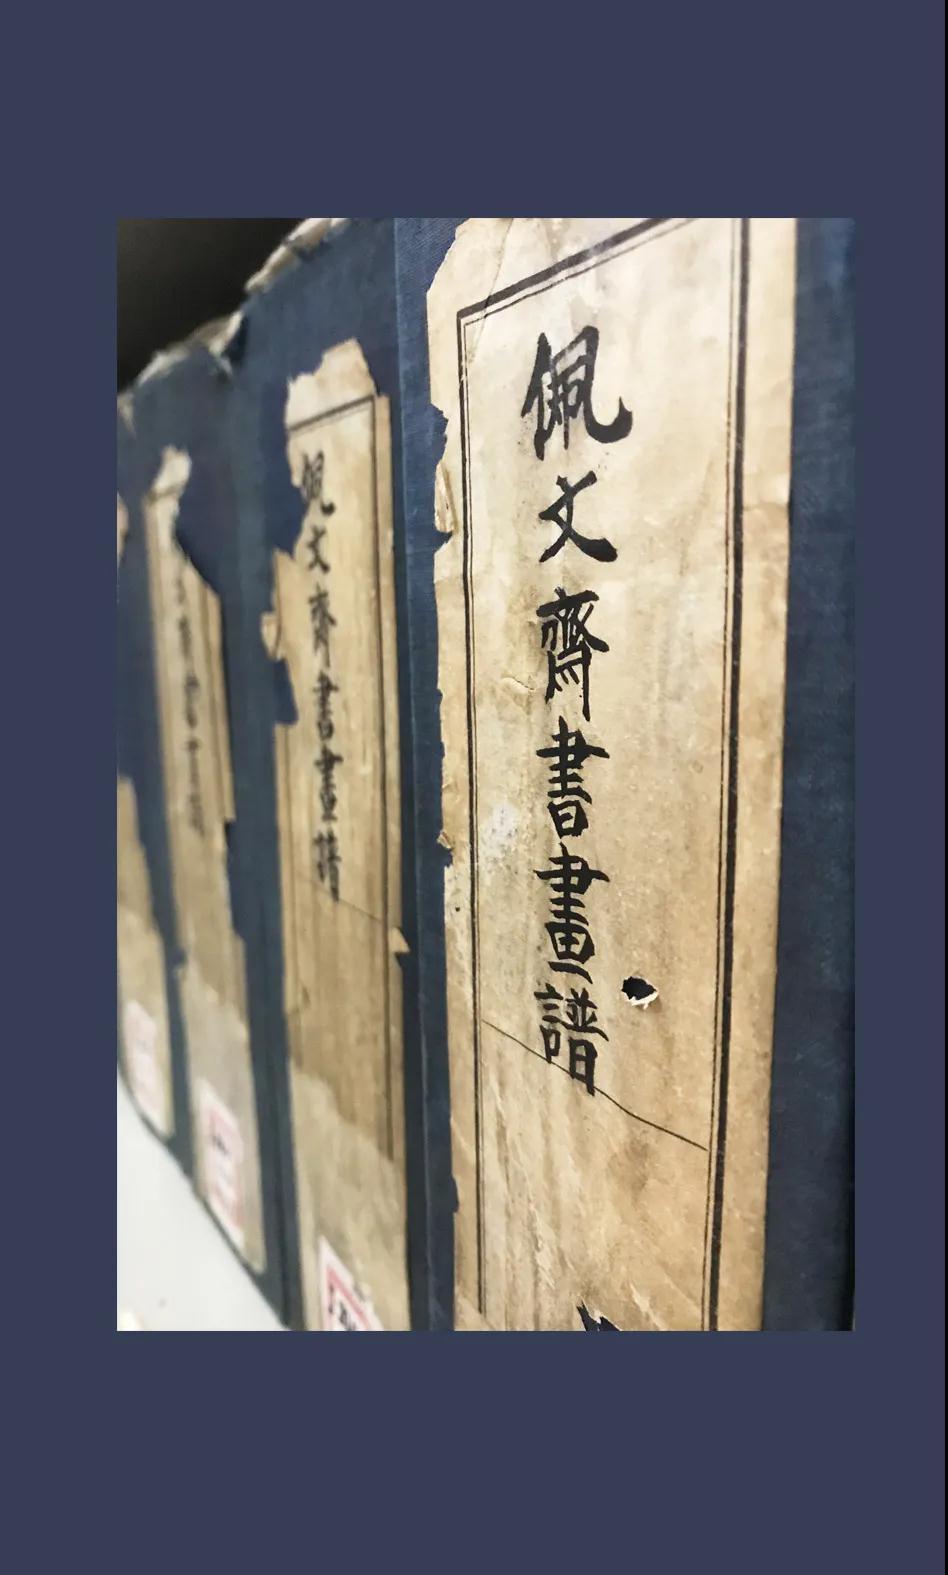 佩文齋書畫譜
佩文齋書畫譜